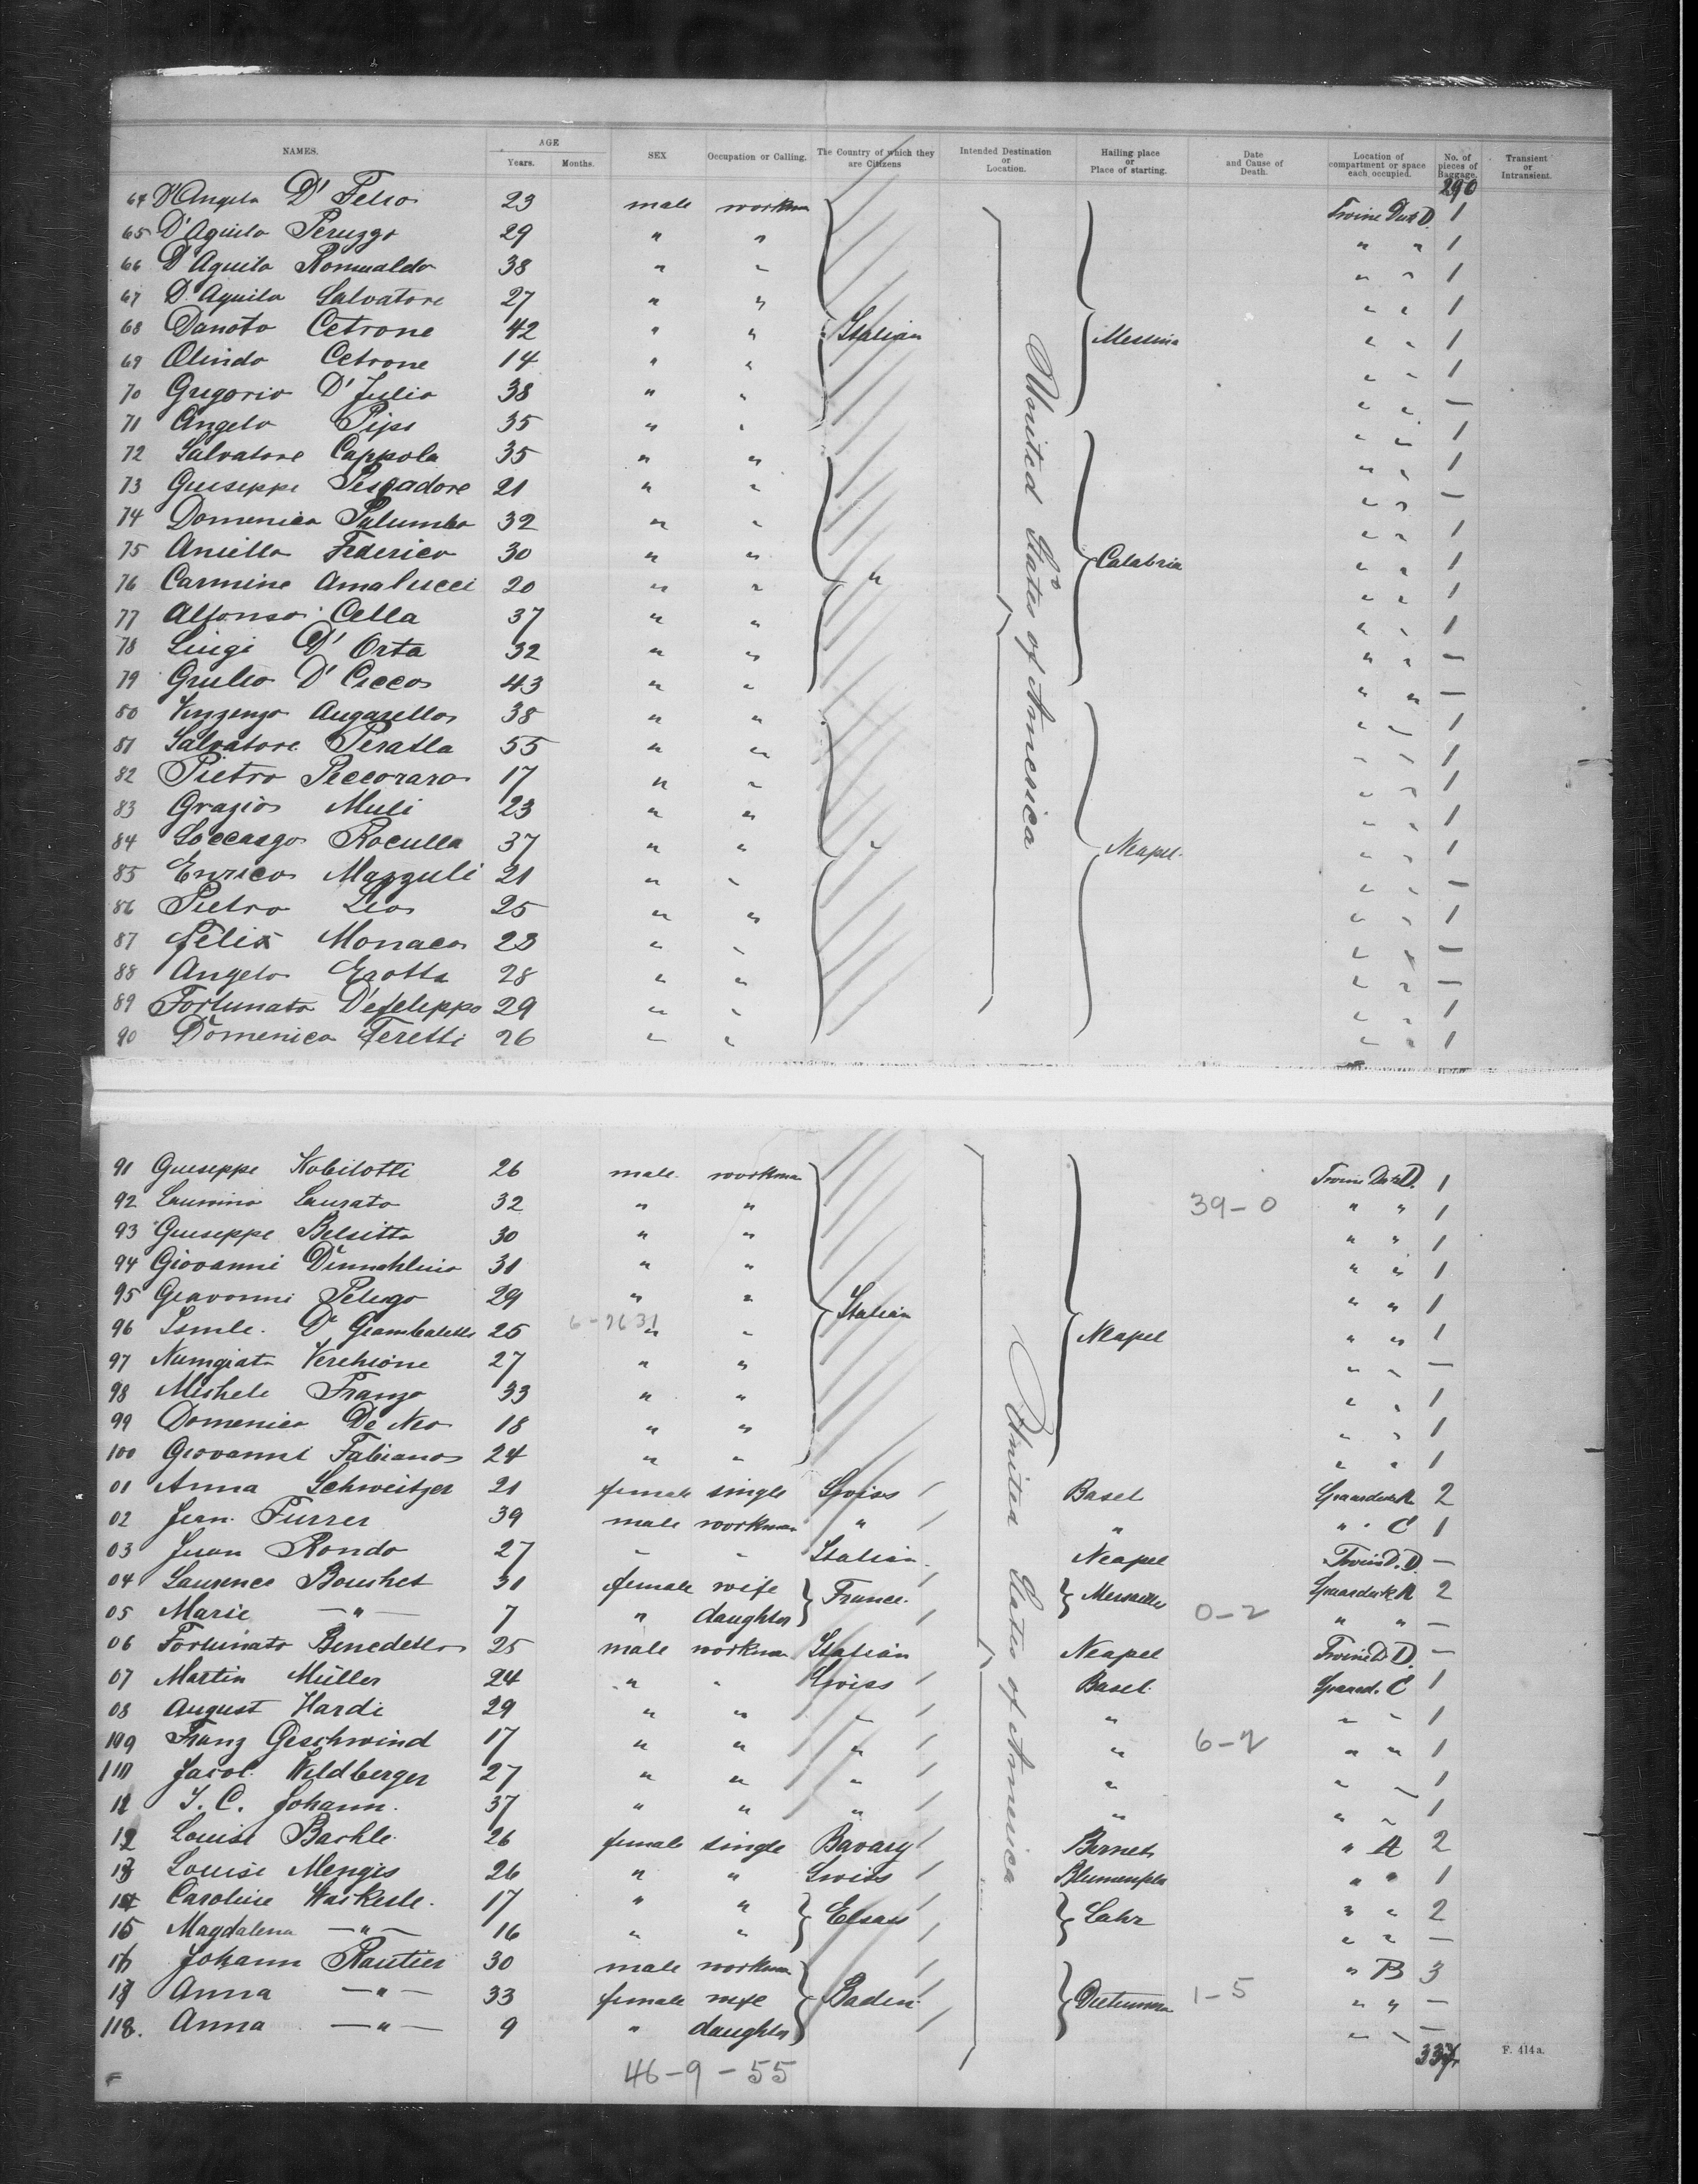 NAMES. AGE Years. Months. SEX Occupation or Calling. The Country of which they are Citizens Intended Destination or Location. Hailing place or Place of starting. Date and Cause of Death. Location of compartment or space each occupied. No. of pieces of Baggage. Transient or Intransient.
290
64 D'Angelo D' Felso 23 male workman 1
65 D'Aquila Peruzzo 29 " " " " 1
66 D'Aquila Romualdo 38 " " " " 1
67 D'Aquila Salvatore 27 " " " " 1
68 Danoto Cetrone 42 " " Italian United States of America Messina " " 1
69 Olindo Cetrone 14 " " " " 1
70 Gregorio D' Julio 38 " " " " —
71 Angelo Pipo 35 " " " " 1
72 Salvatore Cappola 35 " " " " 1
73 Guiseppe Pescadore 21 " " " " —
74 Domenico Palumbo 32 " " " " 1
75 Aniello Federico 30 " " Calabria " " 1
76 Carmine Amalucci 20 " " " " " 1
77 Alfonso Cella 37 " " " " 1
78 Luigi D' Orta 32 " " " " —
79 Giulio D' Cicco 43 " " " " —
80 Vinzenzo Augarello 38 " " " " 1
81 Salvatore Peralla 55 " " " " 1
82 Pietro Peccoraro 17 " " " " 1
83 Grazio Muli 23 " " " " 1
84 Roculla 37 " " " Neapel. " " 1
85 Enrico Mazzuli 21 " " " " —
86 Pietro Leo 25 " " " " 1
87 Felix Monaco 23 " " " " —
88 Angelo Erotta 28 " " " " —
89 Fortunato D'efelippo 29 " " " " 1
90 Domenico Feretti 26 " " " " 1
91 Guiseppe Nobilotti 26 male workman 1
92 Laurato 32 " " 39-0 " " 1
93 Guiseppe Belsitto 30 " " " " 1
94 Giovanni 31 " " " " 1
95 Giavonni Pelugo 29 " " Italian " " 1
96 D' 25 " " Neapel " " 1
97 Verchione 27 " " " " —
98 Michele Franzo 33 " " " " 1
99 Domenico De Neo 18 " " " " 1
100 Giovanni Fabiano 24 " " " " 1
01 Anna Schweitzer 21 female single Swiss United States of America Basel 2
02 Jean Furrer 39 male workman " " " " C 1
03 Juan Rondo 27 " " Italian Neapel —
04 Laurence Bouchet 31 female wife France. 2
05 Marie —"— 7 " daughter 0-2 " " —
06 Fortunato Benedetto 25 male workman Italian Neapel —
07 Martin Müller 24 " " Swiss Basel. C 1
08 August Hardi 29 " " " " " " 1
109 Franz Geschwind 17 " " " " 6-2 " " 1
110 Jacob Wildberger 27 " " " " " " 1
11 J. C. Johann. 37 " " " " " " 1
12 Louise Bachle. 26 female single Bavary " A 2
13 Louise Mengis 26 " " Swiss " " 1
14 Caroline 17 " " Elsass Lahr " " 2
15 Magdalena —"— 16 " " " " —
16 Johann Rautier 30 male workman " B 3
17 Anna —"— 33 female wife Baden. 1-5 " " —
118. Anna —"— 9 " daughter " " —
337
F. 414a.
46-9-55